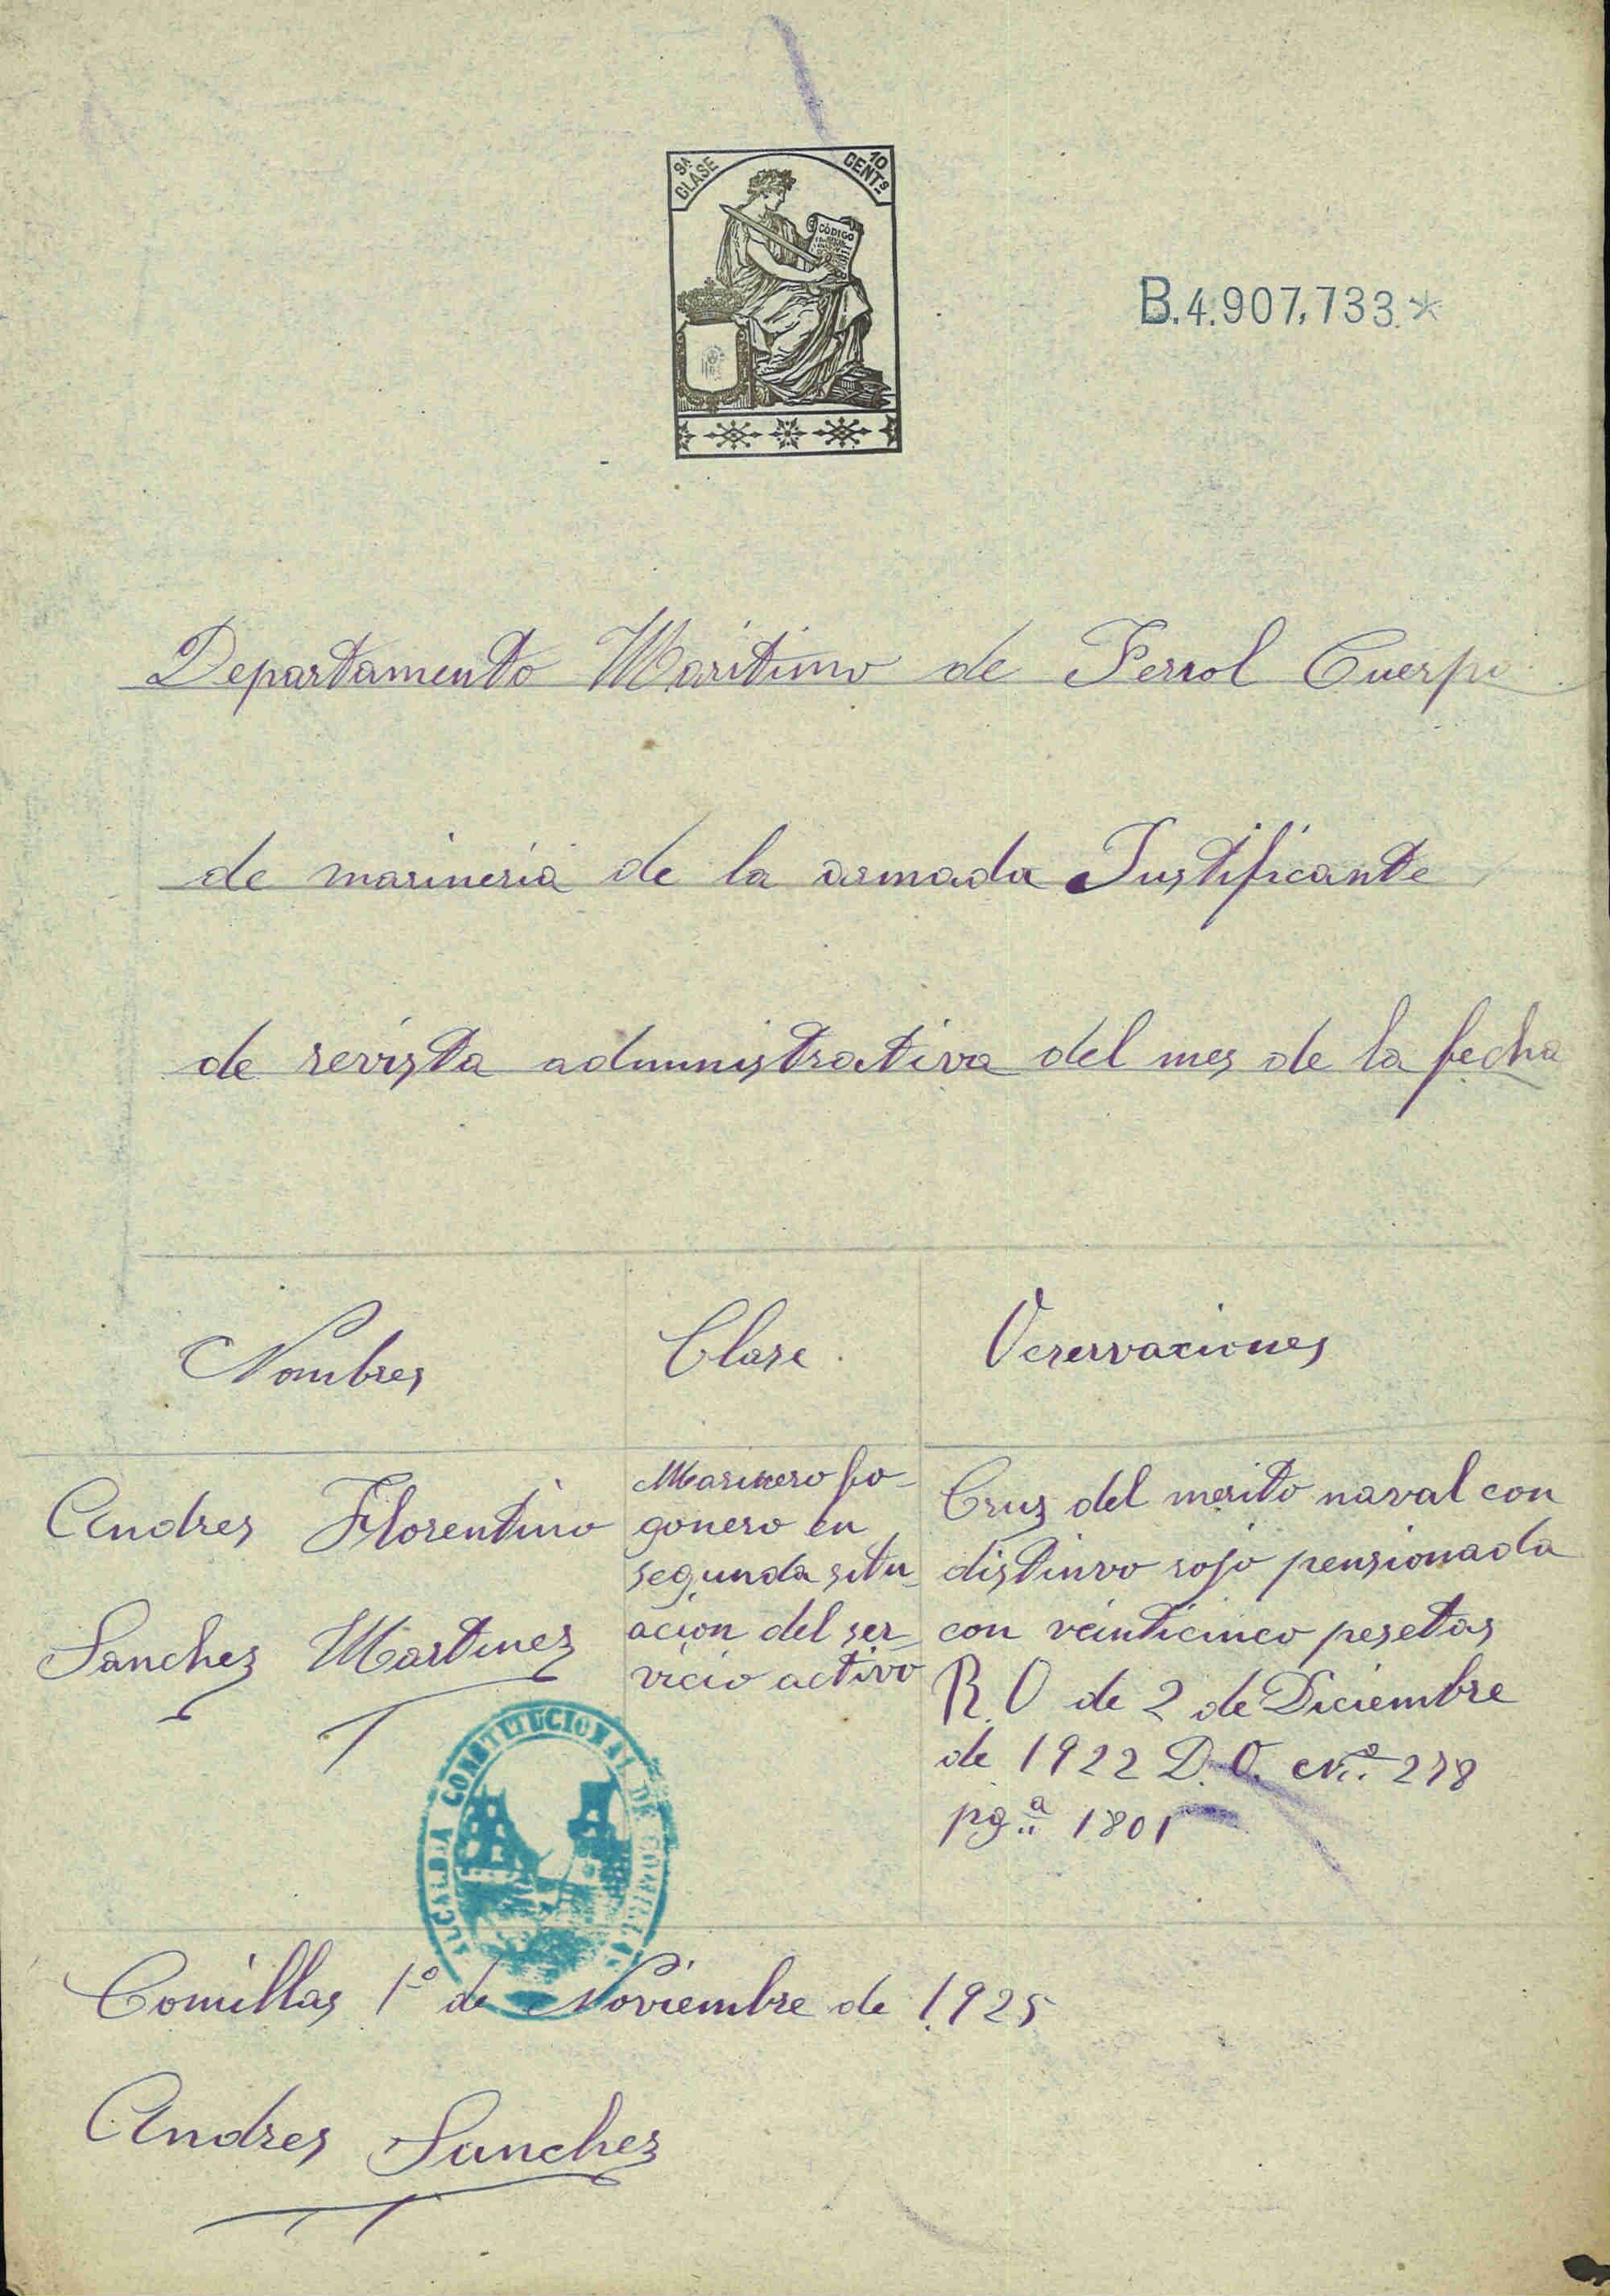 9ª CLASE
10 CENTˢ
CÓDIGO
B.4.907,733.*
Departamento Maritimo de Ferrol Cuerpo
de marineria de la armada Justificante
de revista administrativa del mes de la fecha
Nombres
Clase
Oeservaciones
Andres Florentino
Sanchez Martinez
Marinero fo-
gonero en
segunda situ-
acion del ser-
vicio activo
Cruz del merito naval con
distinvo rojo pensionada
con veinticinco pesetas
R.O de 2 de Diciembre
de 1922 D.O. Nº 278
pgª 1801
ALCALDIA CONSTITUCIONAL DE COMILLAS
Comillas 1º de Noviembre de 1925
Andres Sanchez